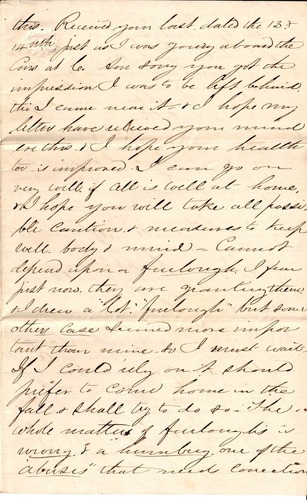 this. Received your last dated the 13 &
14 inst just as I was going aboard the
Cars at C. Am sorry you got the
impression I was to be left behind,
tho I came near it & I hope my
letters have relieved your mind
ere this & I hope your health
too is improved. I can go on
very well if all is well at home,
& I hope you will take all possi
ble caution & measures to keep
well body & mind - Cannot
depend upon a furlough, I fear
just now. they are granting them
& I drew a "lot" "furlough" but some
others case seemed more impor
tant than mine & I must wait.
If I could rely on it should
prefer to come home in the
fall & shall try to do so - The
whole matter of furloughs is
wrong & a "humbug" one of the
"abuses" that needs correction